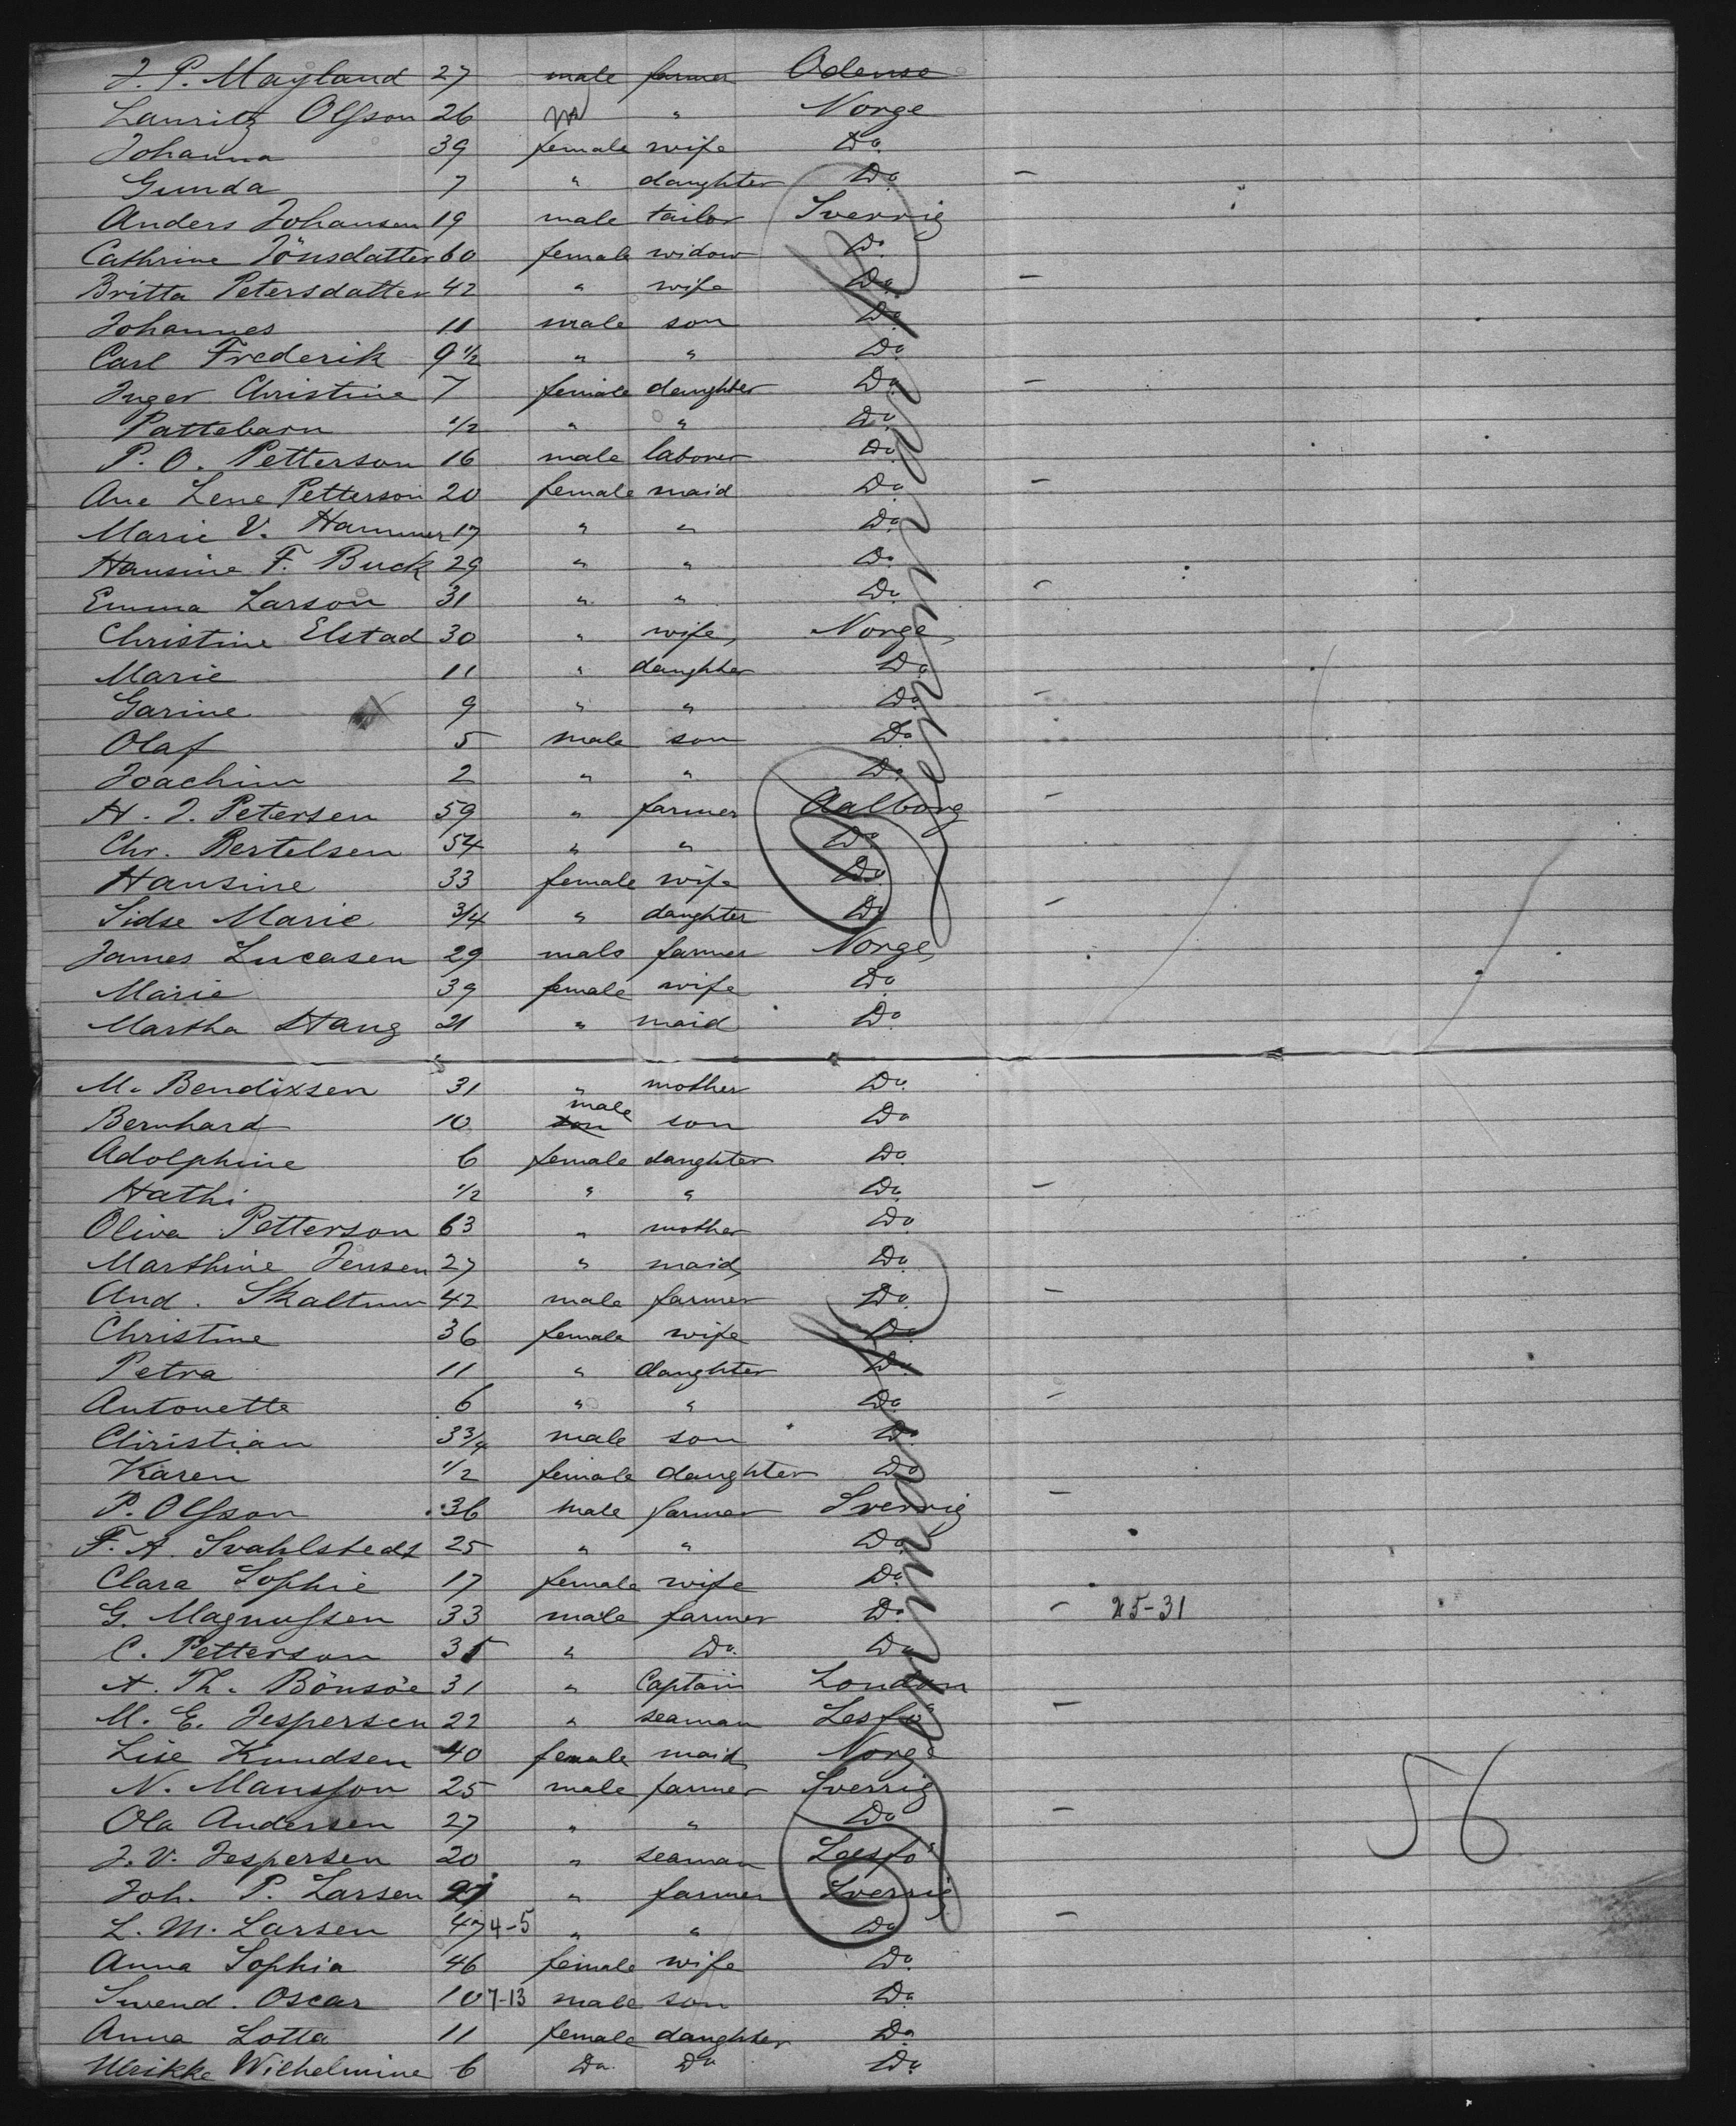 J. P. Mayland 27 male farmer Odense
Lauritz Olsson 26 m " Norge
Johanna 39 female wife Do.
Gunda 7 " daughter Do. -
Anders Johansen 19 male tailor Sverrig
Cathrine Jönsdatter 60 female widow Do.
Britta Petersdatter 42 " wife Do. -
Johannes 11 male son Do.
Carl Frederik 9 1/2 " " Do.
Inger Christine 7 female daughter Do. -
Pattebarn 1/2 " " Do.
P. O. Petterson 16 male laborer Do.
Ane Lene Petterson 20 female maid Do. -
Marie V. Hammer 17 " " Do.
Hansine F. Buck 29 " " Do.
Emma Larson 31 " " Do. -
Christine Elstad 30 " wife Norge
Marie 11 " daughter Do.
Garine 9 " " Do. -
Olaf 5 male son Do.
Joachim 2 " " Do.
H. J. Petersen 59 " farmer Aalborg -
Chr. Bertelsen 54 " " Do.
Hansine 33 female wife Do.
Sidse Marie 3/4 " daughter Do. -
James Lucasen 29 male farmer Norge
Marie 39 female wife Do.
Martha Haug 21 " maid Do.
Denmark
M. Bendixsen 31 " mother Do.
Bernhard 10 son male son Do.
Adolphine 6 female daughter Do.
Hathi 1/2 " " Do. -
Oliva Petterson 63 " mother Do.
Marthine Jensen 27 " maid Do.
And. Skaltum 42 male farmer Do. -
Christine 36 female wife Do.
Petra 11 " daughter Do.
Antonette 6 " " Do. -
Christian 3 3/4 male son Do.
Karen 1/2 female daughter Do.
P. Olsson 36 male farmer Sverrig -
F. A. Svahlstedt 25 " " Do.
Clara Sophie 17 female wife Do.
G. Magnussen 33 male farmer Do. - 25-31
C. Petterson 35 " Do. Do.
A. Th. Bönsöe 31 " Captain London
M. E. Jespersen 22 " seaman -
Lise Knudsen 40 female maid Norge
N. Mansson 25 male farmer Sverrig
Ola Andersen 27 " " Do. -
56
J. V. Jespersen 20 " seaman
Joh. P. Larsen 27 " farmer Sverrig
L. M. Larsen 47 4-5 " " Do. -
Anna Sophia 46 female wife Do.
Swend. Oscar 10 7-13 male son Do.
Anna Lotta 11 female daughter Do.
Ulrikke Wilhelmine 6 Do. Do. Do.
Denmark